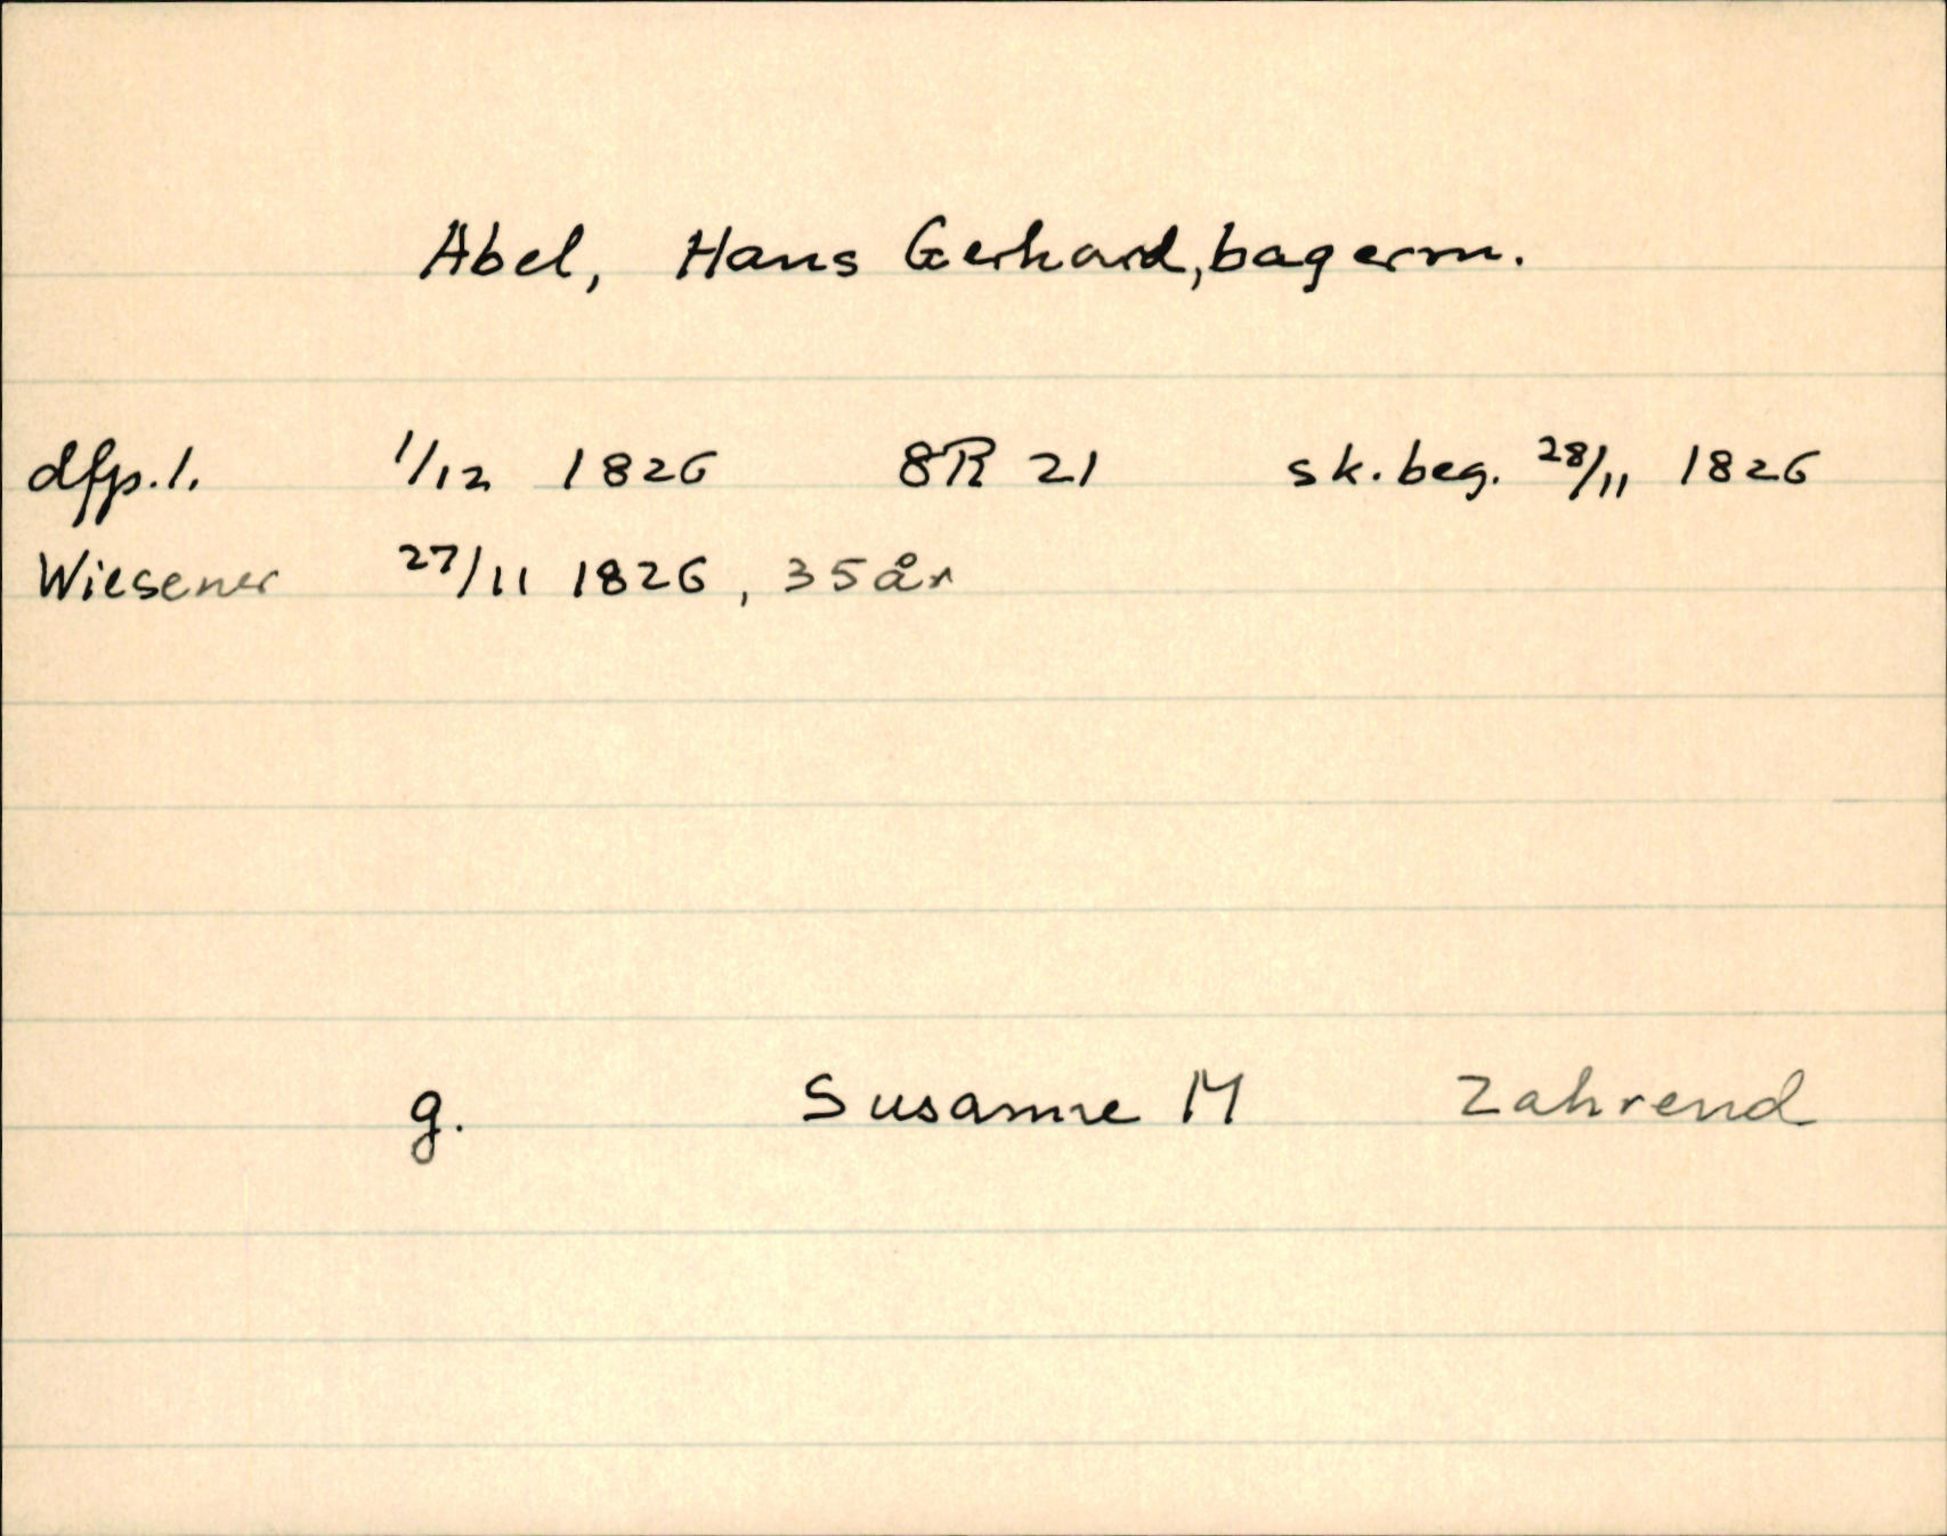 Abel, Hans Gerhard, bagerm.
dfp.l. 1/12 1826 8R 21 sk.beg. 28/11 1826
Wiesener 27/11 1826, 35 år
g. Susanne M Zahrend